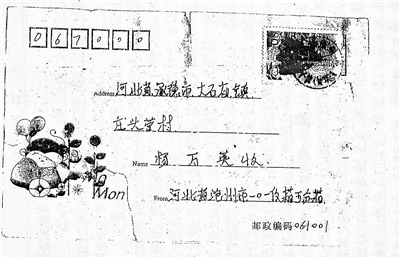 067000
Address 河北省承德市大石庙镇
庄头营村
Name 杨万英收
From 河北省沧州市一〇一
Mon
邮政编码061001